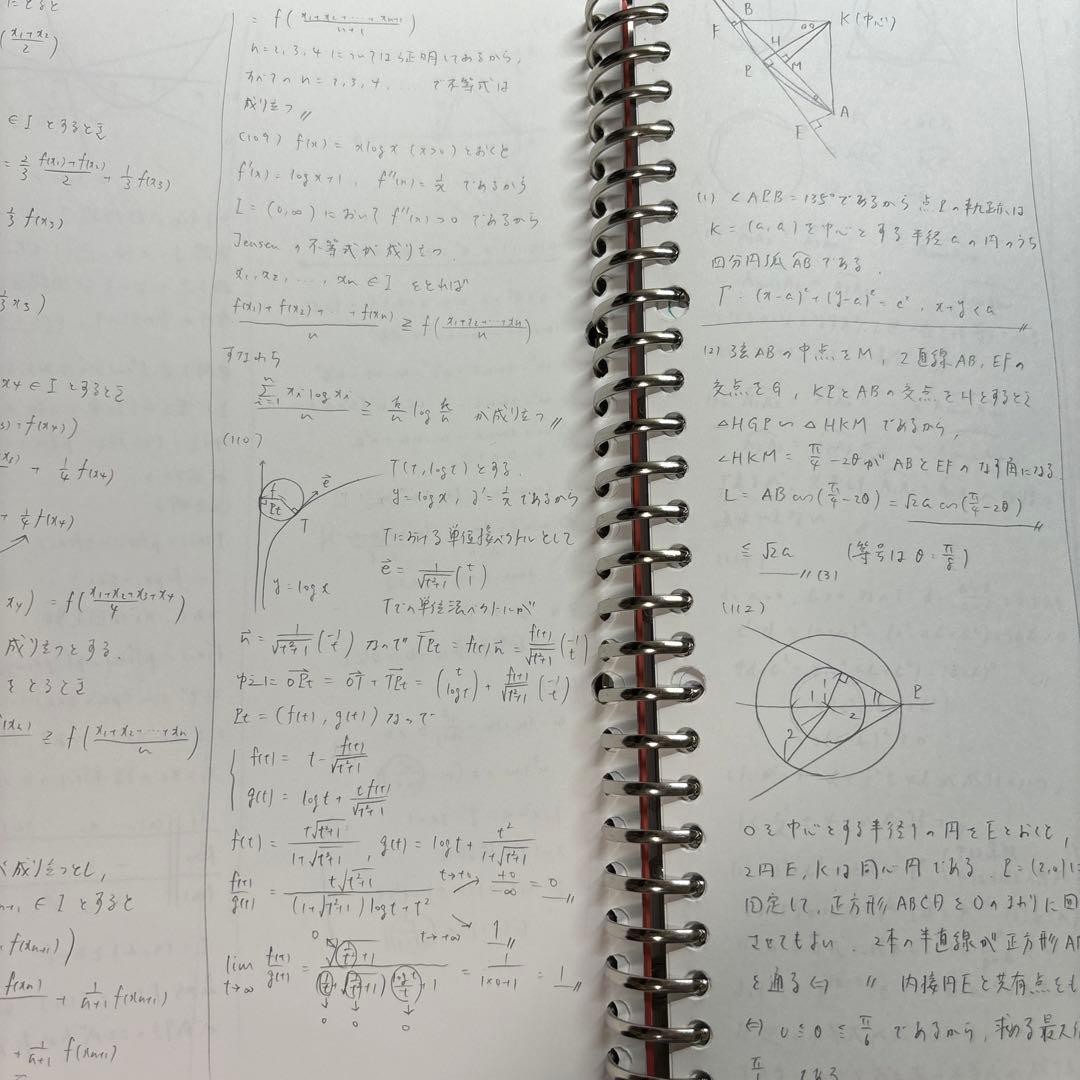 にとると
(x₁+x₂)/2)
∈ I とすると
= 2/3 (f(x₁)+f(x₂))/2 + 1/3 f(x₃)
1/3 f(x₃)
1/3 x₃)
x₄ ∈ I とすると
+ f(x₄))
+ 1/4 f(x₄)
+ 1/4 f(x₄)
x₄) = f((x₁+x₂+x₃+x₄)/4)
成り立つとする.
をとると
≧ f((x₁+x₂+…+xₙ)/n)
が成り立つとし,
∈ I とすると
f(xₙ₊₁))
f(xₙ) + 1/(n+1) f(xₙ₊₁)
+ 1/(n+1) f(xₙ₊₁)
= f((x₁+x₂+…+xₙ₊₁)/(n+1))
n=2,3,4 については証明してあるから,
すべての n=2,3,4,… で不等式は
成り立つ //
(109) f(x) = x log x (x>0) とおくと
f'(x) = log x+1, f''(x) = 1/x であるから
I = (0,∞) において f''(x)>0 であるから
Jensen の不等式が成り立つ.
x₁,x₂,…,xₙ ∈ I をとれば
(f(x₁)+f(x₂)+…+f(xₙ))/n ≧ f((x₁+x₂+…+xₙ)/n)
すなわち
(Σ_{i=1}^{n} xᵢ log xᵢ)/n ≧ log が成り立つ //
(110)
r
Pt
e⃗
T
y = log x
T(t, log t) とする.
y = log x, y' = 1/x であるから
Tにおける単位接ベクトルとして
e⃗ = 1/√(t²+1) (t 1)
Tでの単位法ベクトルが
n⃗ = 1/√(t²+1) (-1 t) なので TPt = f(t) n⃗ = f(t)/√(t²+1) (-1 t)
中心は OPt = OT + TPt = (t log t) + f(t)/√(t²+1) (-1 t)
Pt = (f(t), g(t)) なので
f(t) = t - f(t)/√(t²+1)
g(t) = log t + t f(t)/√(t²+1)
f(t) = t√(t²+1)/(1+√(t²+1)), g(t) = log t + t²/(1+√(t²+1))
f(t)/g(t) = t√(t²+1)/((1+√(t²+1)) log t + t²) t→+0 +0/-∞ = 0 //
t→+∞ 1 //
lim t→∞ f(t)/g(t) = = 1/(1×0+1) = 1 //
0 0 0 0
B
K(中心)
F
H
P
M
θ
A
E
(1) ∠APB = 135° であるから 点Pの軌跡は
K = (a,a) を中心とする半径 a の円のうち
四分円弧 AB である.
Γ: (x-a)²+(y-a)² = a², x+y<a //
(2) 弦ABの中点をM, 2直線AB, EFの
交点をG, KPとABの交点をHとすると
△HGP ∽ △HKM であるから,
∠HKM = π/4 - 2θ が ABとEFのなす角になる.
L = AB cos(π/4-2θ) = √2a cos(π/4-2θ) //
≦ √2a // (3) (等号は θ = π/8)
(112)
1
1
2
2
P
Oを中心とする半径1の円をEとおくと,
2円E, Kは同心円である. P=(2,0)に
固定して, 正方形ABCDをOのまわりに回
させてもよい. 2本の半直線が正方形AB
を通る ⇔ 〃 内接円Eと共有点をも
⇔ 0 ≦ θ ≦ π/6 であるから, 求める最大
である